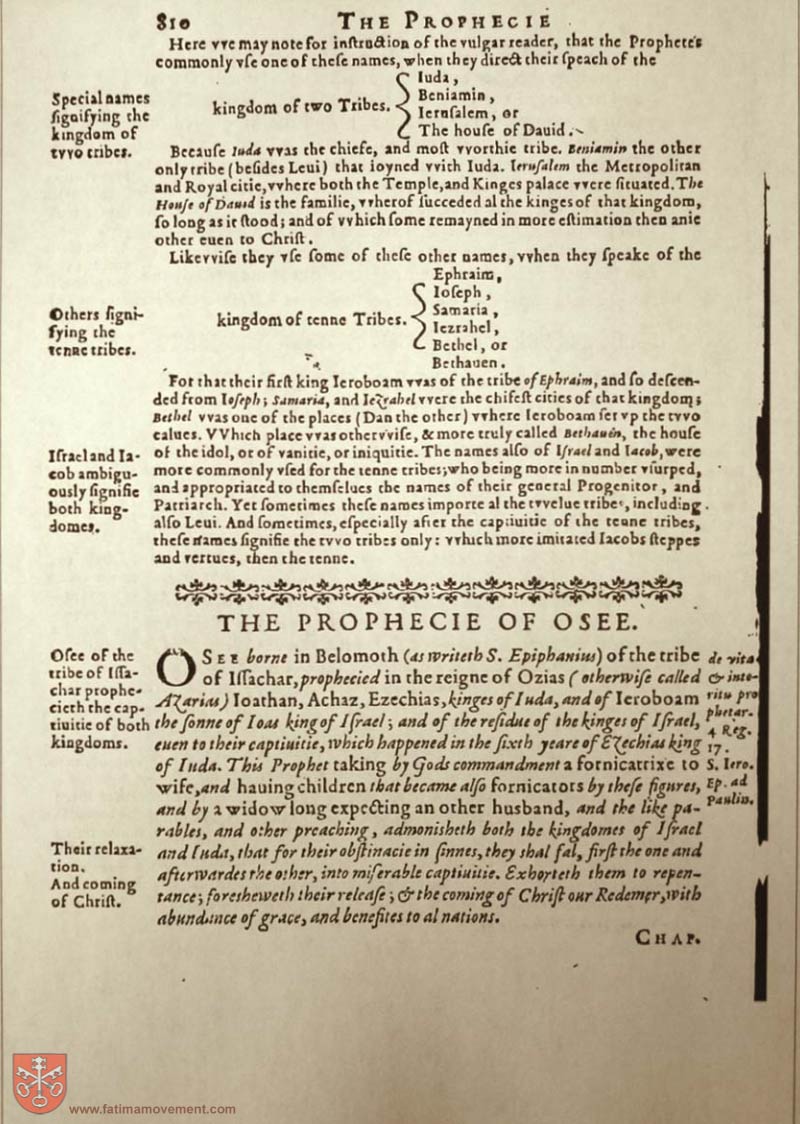 810 THE PROPHECIE
Here vve may note for inſtruction of the vulgar reader, that the Prophetes
commonly vſe one of theſe names, when they direct their ſpeach of the
Special names
ſignifying the
kingdom of
tvvo tribes.
kingdom of two Tribes.
Iuda,
Beniamin,
Ieruſalem, or
The houſe of Dauid.
Becauſe Iuda vvas the chiefe, and moſt vvorthie tribe. Beniamin the other
only tribe (beſides Leui) that ioyned vvith Iuda. Ieruſalem the Metropolitan
and Royal citie, vvhere both the Temple, and Kinges palace vvere ſituated. The
Houſe of Dauid is the familie, vvherof ſucceded al the kinges of that kingdom,
ſo long as it ſtood; and of vvhich ſome remayned in more eſtimation then anie
other euen to Chriſt.
Likevviſe they vſe ſome of theſe other names, vvhen they ſpeake of the
Others ſigni-
fying the
tenne tribes.
kingdom of tenne Tribes.
Ephraim,
Ioſeph,
Samaria,
Iezrahel,
Bethel, or
Bethauen.
For that their firſt king Ieroboam vvas of the tribe of Ephraim, and ſo deſcen-
ded from Ioſeph; Samaria, and Iezrahel vvere the chifeſt cities of that kingdom;
Bethel vvas one of the places (Dan the other) vvhere Ieroboam ſet vp the tvvo
calues. VVhich place vvas othervviſe, & more truly called Bethauen, the houſe
of the idol, or of vanitie, or iniquitie. The names alſo of Iſrael and Iacob, were
more commonly vſed for the tenne tribes; who being more in number vſurped,
and appropriated to themſelues the names of their general Progenitor, and
Patriarch. Yet ſometimes theſe names importe al the tvvelue tribes, including
alſo Leui. And ſometimes, eſpecially after the captiuitie of the tenne tribes,
theſe names ſignifie the tvvo tribes only: vvhich more imitated Iacobs ſteppes
and vertues, then the tenne.
Iſrael and Ia-
cob ambigu-
ouſly ſignifie
both king-
domes.
THE PROPHECIE OF OSEE.
Oſee of the
tribe of Iſſa-
char prophe-
cieth the cap-
tiuitie of both
kingdoms.
OSEE borne in Belomoth (as writeth S. Epiphanius) of the tribe
of Iſſachar, prophecied in the reigne of Ozias (otherwiſe called
Azarias) Ioathan, Achaz, Ezechias, kinges of Iuda, and of Ieroboam
the ſonne of Ioas king of Iſrael; and of the reſidue of the kinges of Iſrael,
euen to their captiuitie, which happened in the ſixth yeare of Ezechias king
of Iuda. This Prophet taking by Gods commandment a fornicatrixe to
wife, and hauing children that became alſo fornicators by theſe figures,
and by a widow long expecting an other husband, and the like pa-
rables, and other preaching, admonisheth both the kingdomes of Iſrael
and Iuda, that for their obſtinacie in ſinnes, they shal fal, firſt the one and
afterwardes the other, into miſerable captiuitie. Exhorteth them to repen-
tance; foresheweth their releaſe; & the coming of Chriſt our Redemer, with
abundance of grace, and benefites to al nations.
de vita
& inte-
ritu pro
phetar.
4 Reg.
17.
S. Iero.
Ep. ad
Paulin.
Their relaxa-
tion.
And coming
of Chriſt.
CHAP.
www.fatimamovement.com